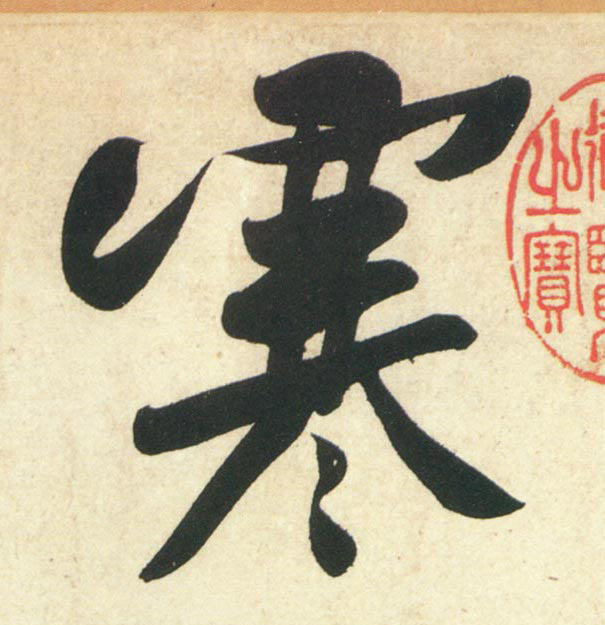 寒
之寶